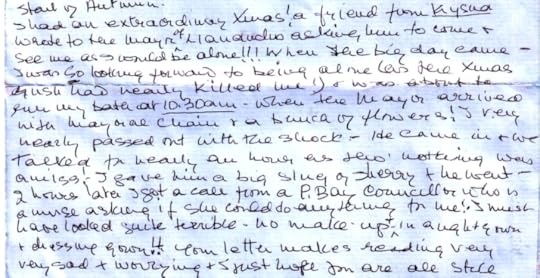 Start of Autumn.
I had an extraordinary Xmas! a friend from
wrote to the Mayor of Llandudno asking him to come &
see me as I would be alone!!! When the big day came –
I was so looking forward to being alone (as the Xmas
rush had nearly killed me!) & was about to
run my bath at 10:30am – when the Mayor arrived
with mayoral chain & a bunch of flowers! I very
nearly passed out with the shock – He came in & we
talked for nearly an hour as tho' nothing was
amiss! I gave him a big slug of sherry & he went –
2 hours later I got a call from a P. Bay Councillor who is
a nurse asking if she could do anything for me! I must
have looked quite terrible – no make-up, in a nightgown
& dressing gown!! Your letter makes reading very
very sad & worrying & I just hope you are all still